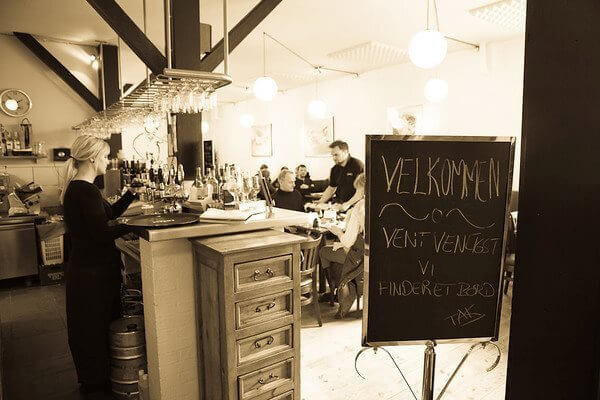 VELKOMMEN
VENT VENLIGST
VI
FINDER ET BORD
TAK